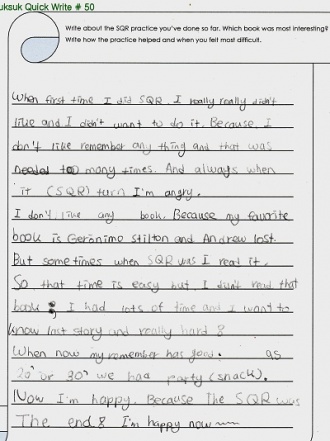 uksuk Quick Write # 50
Write about the SQR practice you've done so far. Which book was most interesting?
Write how the practice helped and when you felt most difficult.
When first time I did SQR. I really really didn't
like and I didn't want to do it. Because. I
don't like remember any thing and that was
needed too many times. And always when
it (SQR) turn I'm angry.
I don't like any book. Because my favorite
book is Geronimo Stilton and Andrew lost.
But sometimes when SQR was I read it.
So that time is easy but, I didn't read that
book I had lots of time and I want to
know last story and really hard
When now my remember has good. as
20 or 30 we had party (snack).
Now I'm happy. Because The SQR was
The end I'm happy now